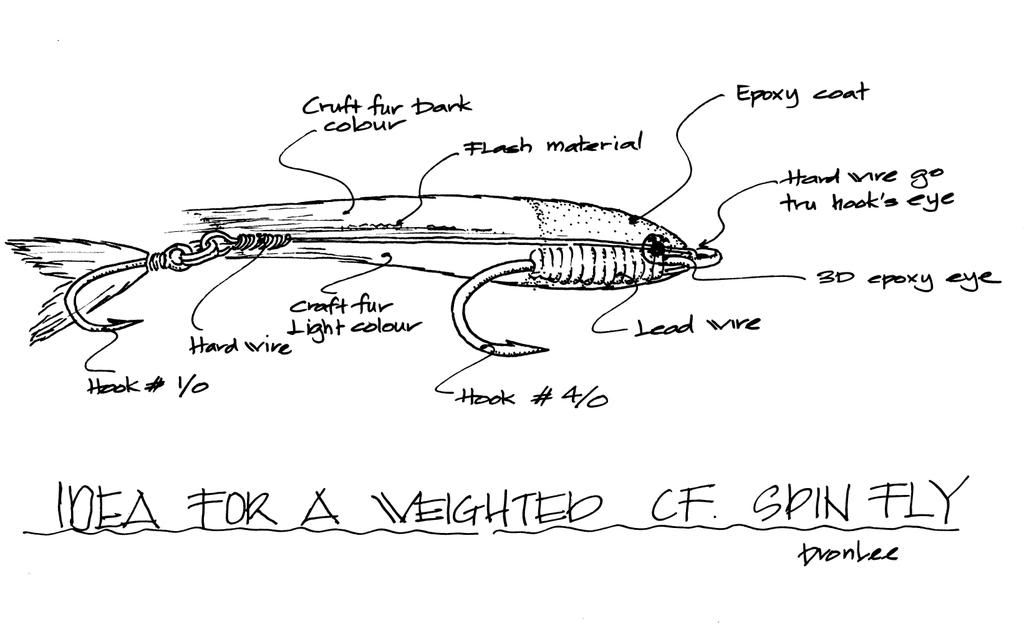 Epoxy coat
Craft fur Dark
colour
Flash material
Hard wire go
tru hook's eye
3D epoxy eye
Craft fur
Light colour
Lead wire
Hard wire
Hook # 1/0
Hook # 4/0
IDEA FOR A WEIGHTED CF. SPIN FLY
DronLee